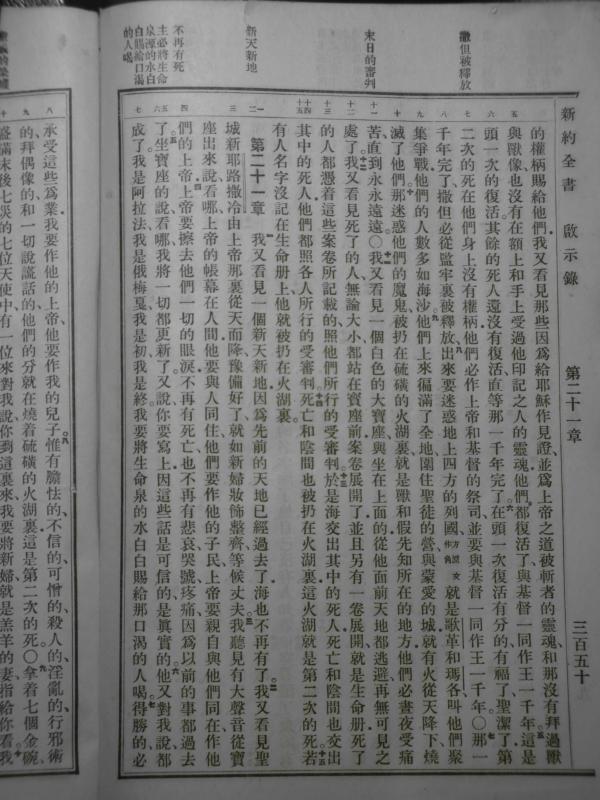 新約全書 啟示錄 第二十一章 三百五十
撒但被釋放
末日的審判
新天新地
不再有死
主必將生命
泉源的水白
白賜給口渴
的人喝
的權柄賜給他們我又看見那些因爲給耶穌作見證並爲上帝之道被斬者的靈魂和那沒有拜過獸
與獸像也沒有在額上和手上受過他印記之人的靈魂他們都復活了與基督一同作王一千年這是
頭一次的復活其餘的死人還沒有復活直等那一千年完了在頭一次復活有分的有福了聖潔了第
二次的死在他們身上沒有權柄他們必作上帝和基督的祭司並要與基督一同作王一千年〇那一
千年完了撒但必從監牢裏被釋放出來要迷惑地上四方的列國方原文作角就是歌革和瑪各叫他們聚
集爭戰他們的人數多如海沙他們上來徧滿了全地圍住聖徒的營與蒙愛的城就有火從天降下燒
滅了他們那迷惑他們的魔鬼被扔在硫磺的火湖裏就是獸和假先知所在的地方他們必晝夜受痛
苦直到永永遠遠〇我又看見一個白色的大寶座與坐在上面的從他面前天地都逃避再無可見之
處了我又看見死了的人無論大小都站在寶座前案卷展開了並且另有一卷展開就是生命册死了
的人都憑着這些案卷所記載的照他們所行的受審判於是海交出其中的死人死亡和陰間也交出
其中的死人他們都照各人所行的受審判死亡和陰間也被扔在火湖裏這火湖就是第二次的死若
有人名字沒記在生命册上他就被扔在火湖裏
第二十一章 我又看見一個新天新地因爲先前的天地已經過去了海也不再有了我又看見聖
城新耶路撒冷由上帝那裏從天而降豫備好了就如新婦妝飾整齊等候丈夫我聽見有大聲音從寶
座出來說看哪上帝的帳幕在人間他要與人同住他們要作他的子民上帝要親自與他們同在作他
們的上帝上帝要擦去他們一切的眼淚不再有死亡也不再有悲哀哭號疼痛因爲以前的事都過去
了坐寶座的說看哪我將一切都更新了又說你要寫上因這些話是可信的是眞實的他又對我說都
成了我是阿拉法我是俄梅戛我是初我是終我要將生命泉的水白白賜給那口渴的人喝得勝的必
承受這些爲業我要作他的上帝他要作我的兒子惟有膽怯的不信的可憎的殺人的淫亂的行邪術
的拜偶像的和一切說謊話的他們的分就在燒着硫磺的火湖裏這是第二次的死〇拿着七個金碗
盛滿末後七災的七位天使中有一位來對我說你到這裏來我要將新婦就是羔羊的妻指給你看我